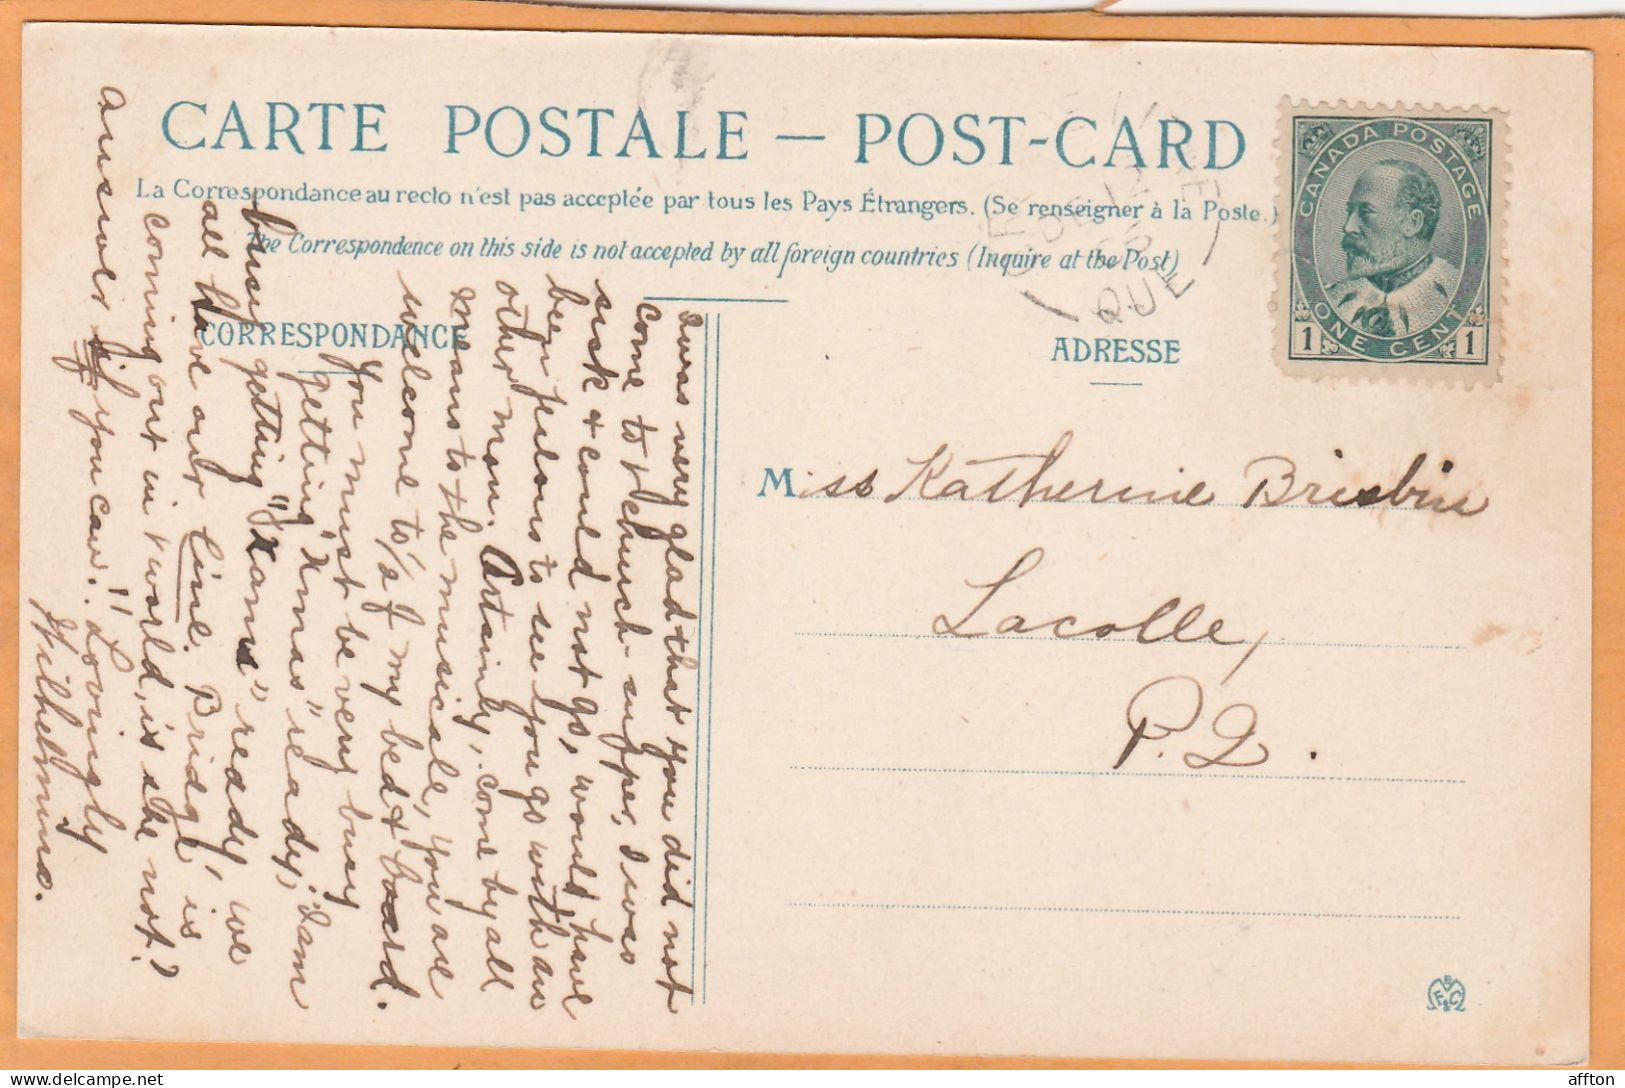 CARTE POSTALE — POST-CARD
La Correspondance au recto n'est pas acceptée par tous les Pays Étrangers. (Se renseigner à la Poste.)
The Correspondence on this side is not accepted by all foreign countries (Inquire at the Post)
CORRESPONDANCE
ADRESSE
CANADA POSTAGE
ONE CENT
1 1
DE 12
QUE
Miss Katherine Brisbin
Lacolle,
P. Q.
I was very glad that you did not
come to church-supper, I was
sick & could not go, would have
been to see you go with an
other mon. Certainly, come by all
means to the musicale, you are
welcome to ½ of my bed & board.
You must be very busy
getting "Xmas" ready, I am
busy getting "Xams" ready, we
all have our line. Bridge is
coming out in world, is she not?
answer if you can." Lovingly
Wilhelmina.
affton